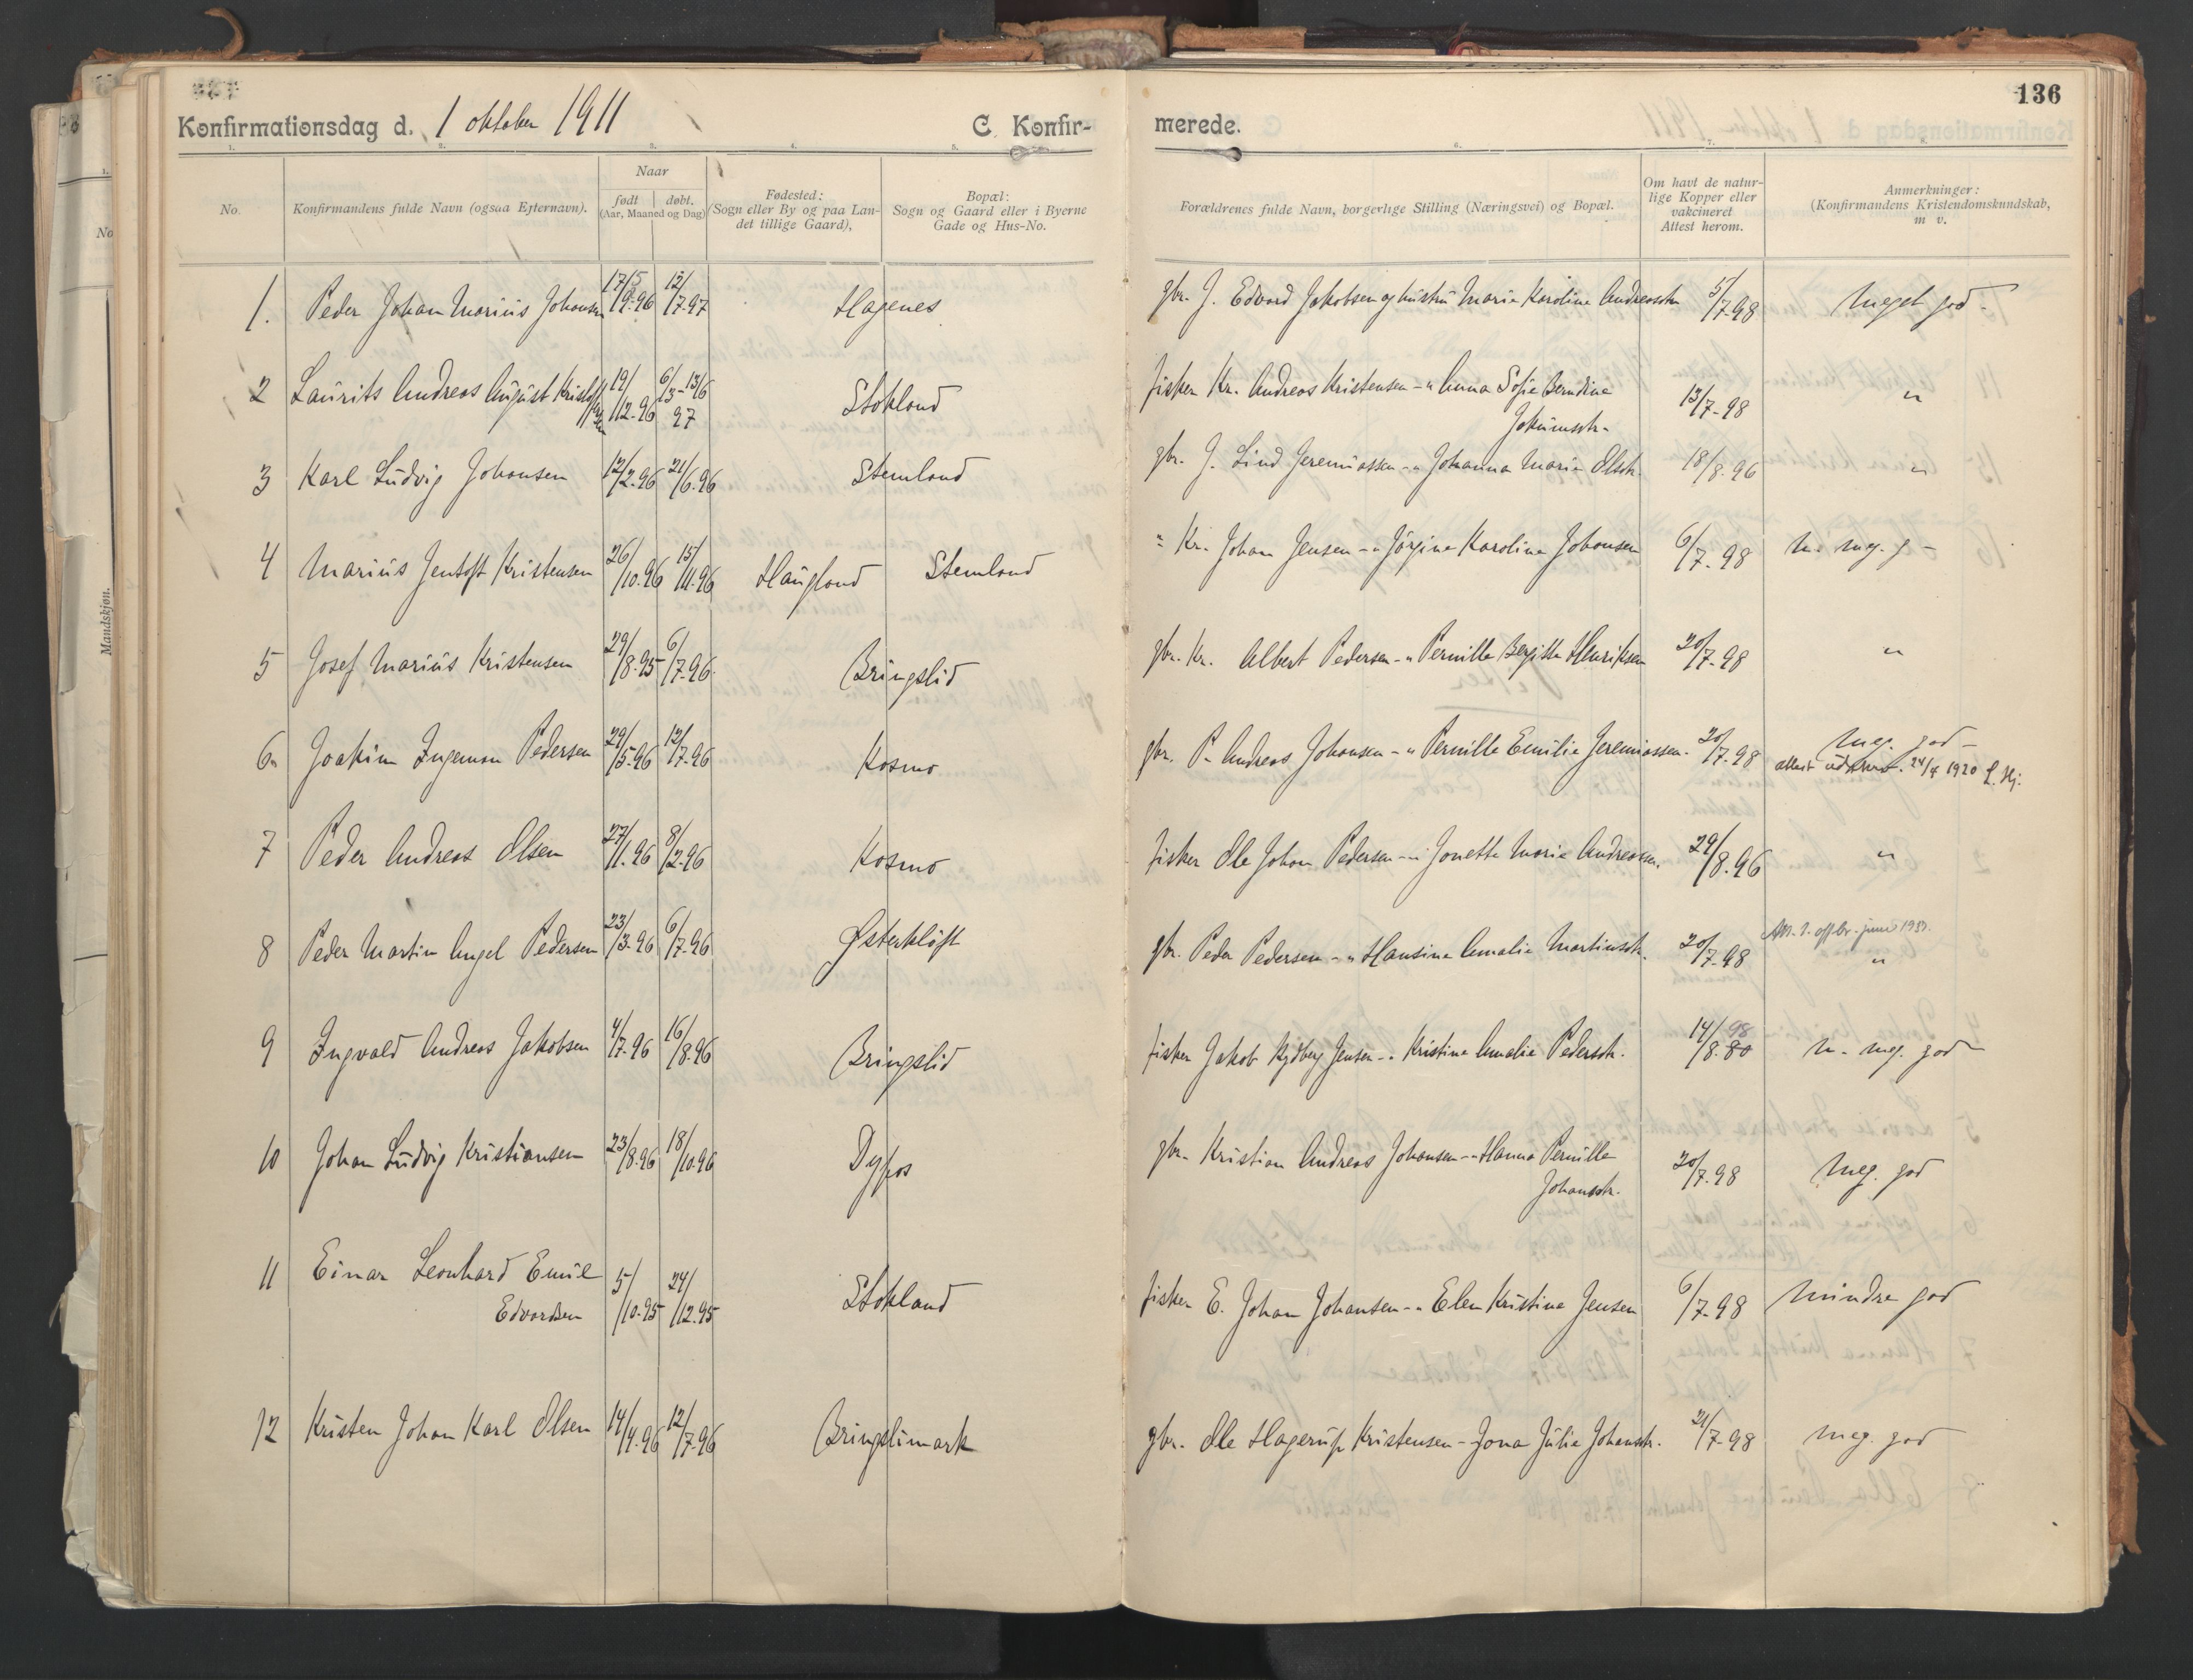 136
Konfirmationsdag d. 1 oktober 1911 C. Konfir-merede.
1. 2. 3. 4. 5. 6. 7. 8.
No. Konfirmandens fulde Navn (ogsaa Efternavn). Naar født døbt. (Aar, Maaned og Dag) Fødested: (Sogn eller By og paa Landet tillige Gaard), Bopæl: Sogn og Gaard eller i Byerne Gade og Hus-No. Forældrenes fulde Navn, borgerlige Stilling (Næringsvei) og Bopæl. Om havt de naturlige Kopper eller vakcineret Attest herom. Anmerkninger: (Konfirmandens Kristendomskundskab, m v.
1. Peder Johan Marius Johansen 17/5 96 12/7-97 Hagenes gbr. J. Edvard Jakobsen og hustru Marie Karoline Andreasdtr 5/7-98 Meget god -
2 Laurits Andreas August 19/12-96 6/3-13/6 97 Stokland fisker Kr. Andreas Kristensen -" Anna Sofie Berndine 13/7-98 "
Jakumsdtr-
3 Karl Ludvig Johansen 12/2-96 21/6.96 Stemland gbr. J. Lind Jeremiassen -" Johanna Marie Olsdtr. 18/8.96 "
4 Marius Jentoft Kristensen 26/10.96 15/11.96 Haugland Stemland " Kr. Johan Jensen -" Jørgine Karoline Johansen 6/7-98 n. meg. g -
5 Josef Marius Kristensen 29/8.95 6/7-96 Bringslid gbr. Kr. Albert Pedersen -" Pernille Bergitte Henriksen 20/7-98 "
6. Joakim Ingeman Pedersen 29/5-96 12/7-96 Kosmo gbr. P. Andreas Johansen -" Pernille Emilie Jeremiassen. 20/7-98 Meg. god -
attest 24/4 1920 L. Hj.
7 Peder Andreas Olsen 27/11.96 8/2-96 Kosmo fisker Ole Johan Pedersen -" Jonette Marie Andreassen. 29/8.96 "
8 Peder Martin Angel Pedersen 23/3-96 6/7-96 Østerkløft gbr. Peder Pedersen -" Hansine Amalie Martinsdtr. 20/7-98 juni 1933.
"
9 Ingvald Andreas Jakobsen 4/7-96 16/8.96 Bringslid fisker Jakob Rydberg Jensen -" Kristine Amalie Pedersdtr. 14/8.80 98 n. meg. god
10 Johan Ludvig Kristiansen 23/8.96 18/10.96 Dypos gbr. Kristian Andreas Johansen -" Hanna Pernille 20/7.98 Meg. god
Johansdtr.
11 Einar Leonhard Emil 5/10.95 24/12.95 Stokland fisker E. Johan Johansen -" Elen Kristine Jensen 6/7-98 Mindre god
Edvardsen
12 Kristen Johan Karl Olsen 14/4.96 12/7-96 Bringslimark gbr. Ole Hagerup Kristensen - Jona Julie Johansdtr. 21/7-98 meg. god
No
Mandskjøn.